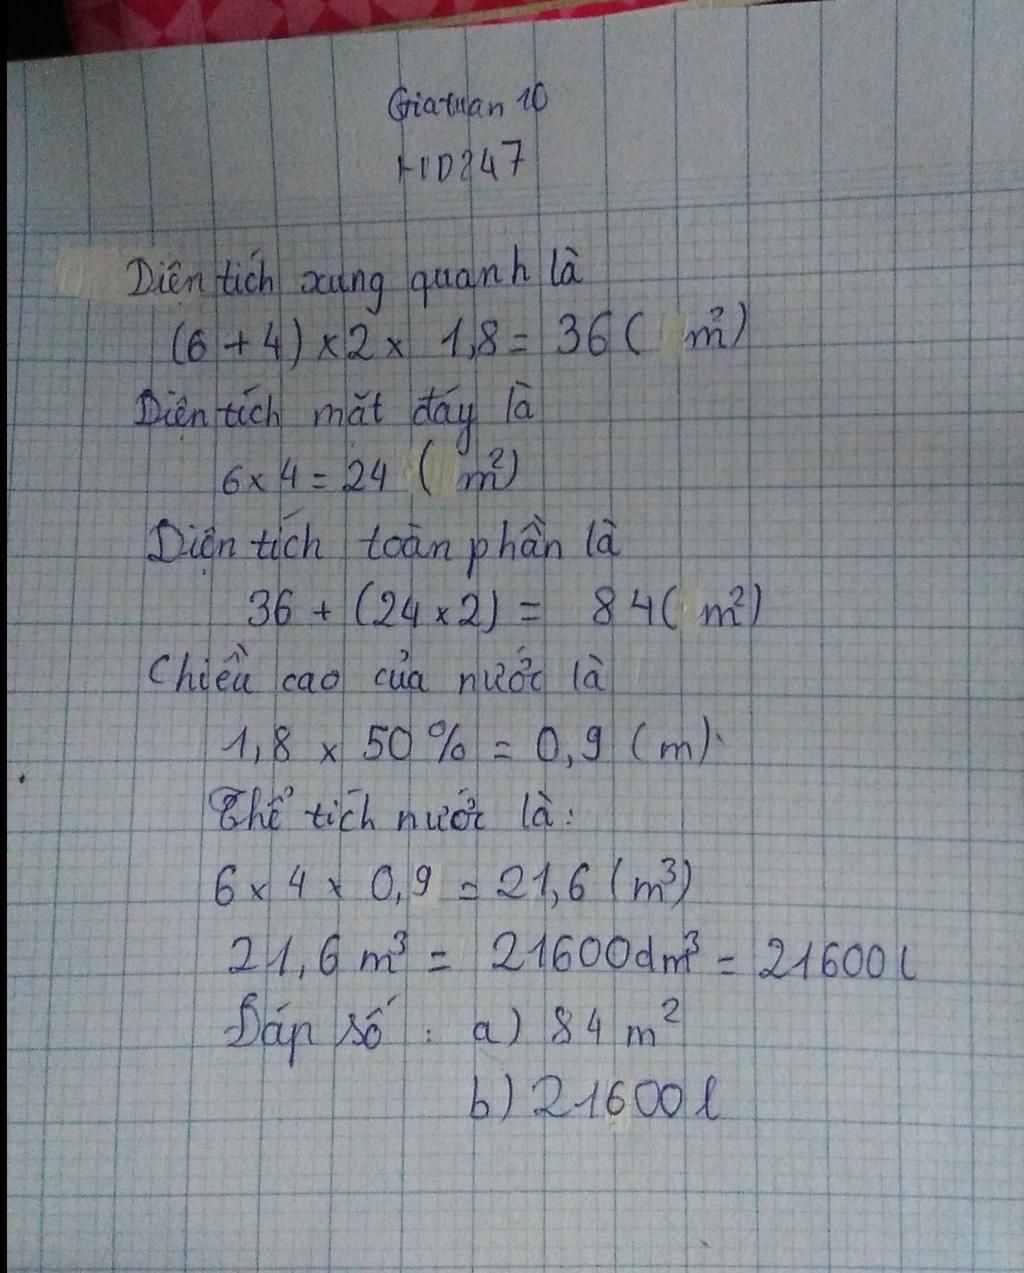 Giatuan 10
HD247
Diện tích xung quanh là
(6 + 4) × 2 × 1,8 = 36 ( m²)
Diện tích mặt đáy là
6 × 4 = 24 ( m²)
Diện tích toàn phần là
36 + (24 × 2) = 84 ( m²)
Chiều cao của nước là
1,8 × 50 % = 0,9 (m)
Thể tích nước là :
6 × 4 × 0,9 = 21,6 (m³)
21,6 m³ = 21600dm³ = 21600 l
Đáp số : a) 84 m²
b) 21600 l